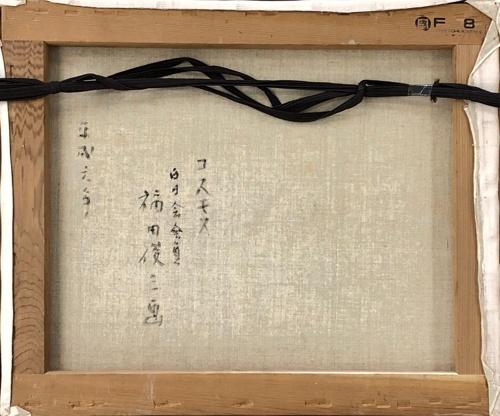 F 8
コスモス
白日会会員
福田俊三画
平成六年